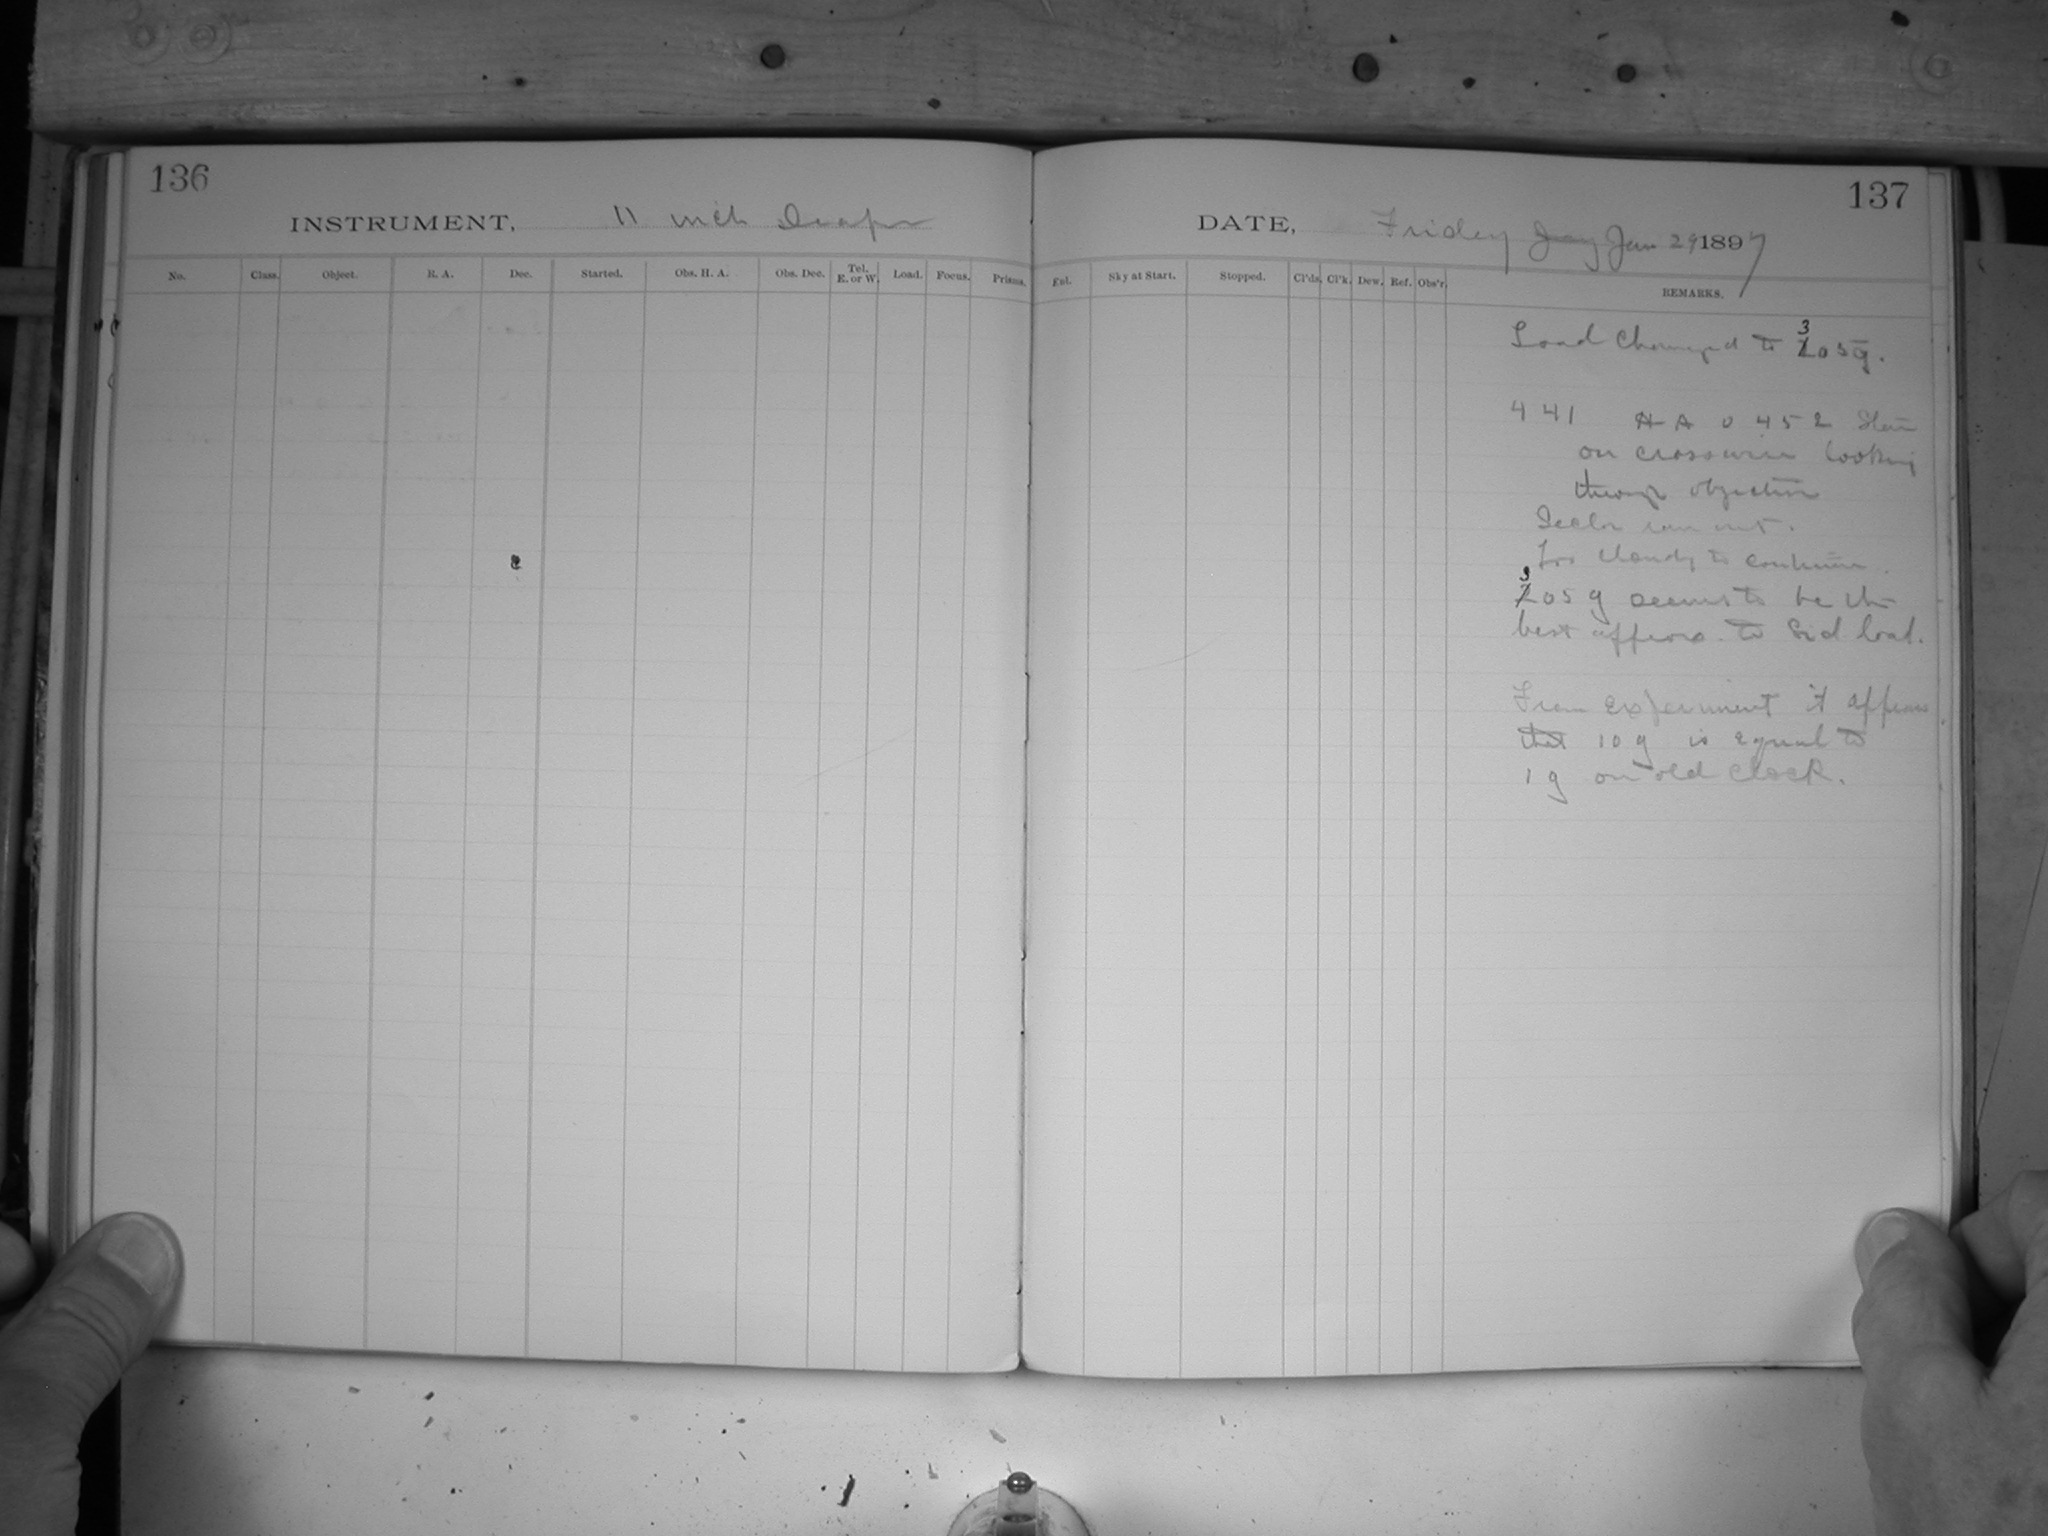 136
137
INSTRUMENT, 11 inch Draper
DATE, Friday Jan 29 1897
No. Class. Object. R. A. Dec. Started. Obs. H. A. Obs. Dec. Tel. E. or W. Load. Focus. Prisms.
Enl. Sky at Start. Stopped. Cl'ds. Cl'k. Dew. Ref. Obs'r. REMARKS.
Load Changed to 305g.
441 HA 0 452 Star
on crosswire looking
through objective
Sector ran out.
Too cloudy to continue.
305 g seems to be the
best approx. to Sid load.
From Experiment it appears
that 10 g is equal to
1 g on old clock.